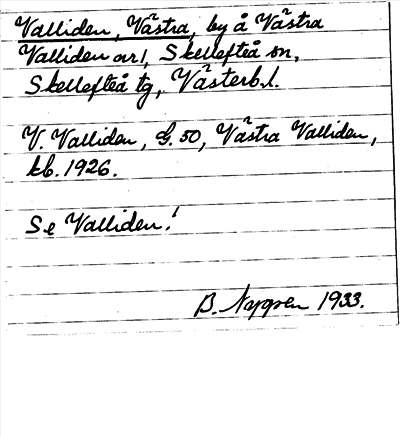 Valliden, Västra, by å Västra
Valliden ar 1, Skellefteå sn,
Skellefteå tg, Västerb. l.
V. Valliden, G. 50, Västra Valliden,
kb. 1926.
Se Valliden!
B. Nygren 1933.